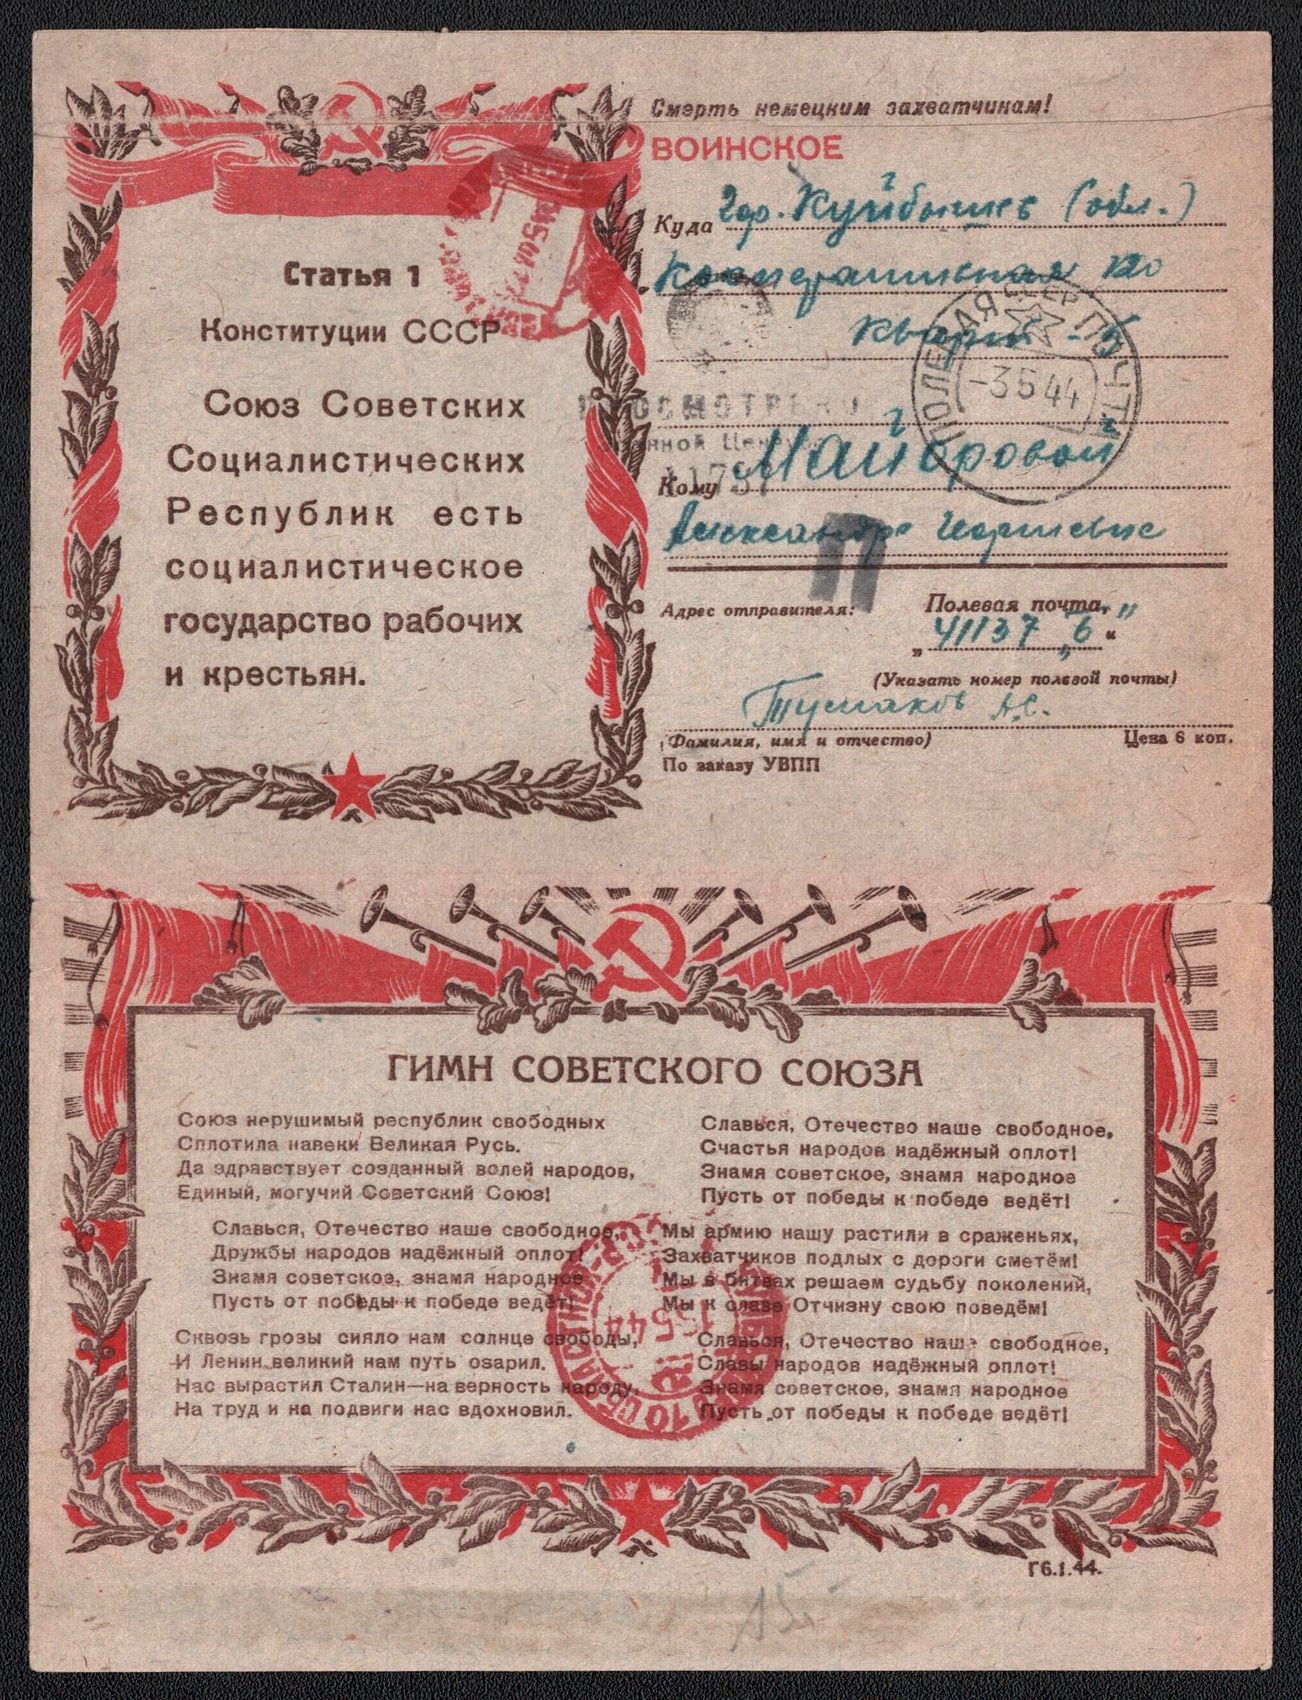 Смерть немецким захватчикам!
ВОИНСКОЕ
Статья 1
Конституции СССР
Союз Советских
Социалистических
Республик есть
социалистическое
государство рабочих
и крестьян.
Куда гор. Куйбышев (обл.)
Кооперативная 120
кварт - 5
ПОЛЕВАЯ ПОЧТА
СССР
-3 5 44
ПРОСМОТРЕНО
Военной Цензурой
11737
Кому Майоровой
Александре Георгиевне
П
Адрес отправителя:
Полевая почта
„41137 „б"
(Указать номер полевой почты)
Тумаков А.С.
(Фамилия, имя и отчество)
Цена 6 коп.
По заказу УВПП
ГИМН СОВЕТСКОГО СОЮЗА
Союз нерушимый республик свободных
Сплотила навеки Великая Русь.
Да здравствует созданный волей народов,
Единый, могучий Советский Союз!
Славься, Отечество наше свободное,
Дружбы народов надёжный оплот!
Знамя советское, знамя народное
Пусть от победы к победе ведёт!
Сквозь грозы сияло нам солнце свободы,
И Ленин великий нам путь озарил.
Нас вырастил Сталин—на верность народу,
На труд и на подвиги нас вдохновил.
Славься, Отечество наше свободное,
Счастья народов надёжный оплот!
Знамя советское, знамя народное
Пусть от победы к победе ведёт!
Мы армию нашу растили в сраженьях,
Захватчиков подлых с дороги сметём!
Мы в битвах решаем судьбу поколений,
Мы к славе Отчизну свою поведём!
Славься, Отечество наше свободное,
Славы народов надёжный оплот!
Знамя советское, знамя народное
Пусть от победы к победе ведёт!
Г6.1.44.
15